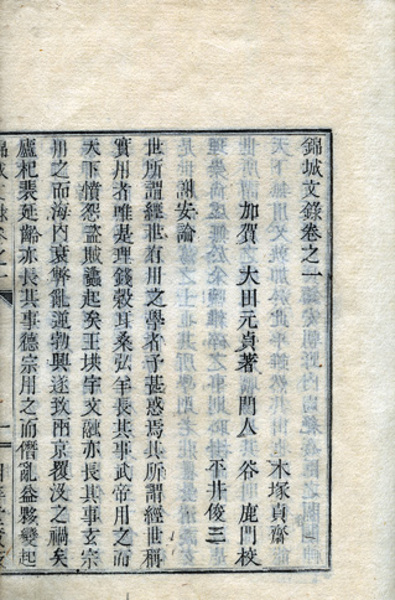 錦城文錄卷之一
木塚貞齋
加賀 大田元貞著 門人 谷鹿門校
平井俊三
謝安論
世所謂經世有用之學者予甚惑焉其所謂經世稱
實用者唯是理錢穀耳桑弘羊長其事武帝用之而
天下憤怨盜賊蠭起矣王珙宇文融亦長其事玄宗
用之而海内衰弊亂逆勃興遂致兩京覆沒之禍矣
盧杞裴延齡亦長其事德宗用之而僭亂益夥變起
錦城文錄卷之一